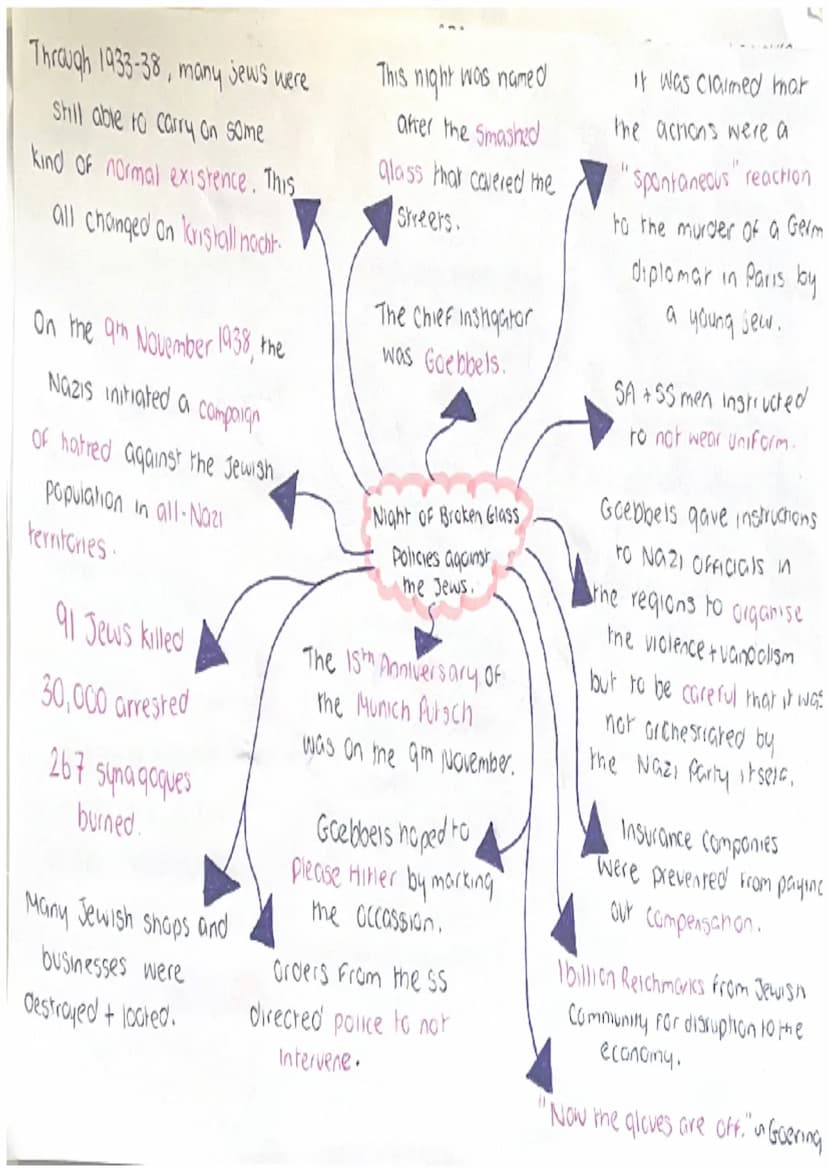 Through 1933-38, many jews were
still able to carry on some
kind of normal existence. This
all changed on kristallnacht.
This night was named
after the smashed
glass that covered the
streets.
It was claimed that
the actions were a
"spontaneous" reaction
to the murder of a Germ
diplomat in Paris by
a young jew.
On the 9th November 1938, the
Nazis initiated a campaign
of hatred against the Jewish
population in all-Nazi
territories.
The Chief instigator
was Goebbels.
SA + SS men instructed
to not wear uniform.
Night of Broken Glass
Policies against
the Jews.
Goebbels gave instructions
to Nazi officials in
the regions to organise
the violence + vandalism
but to be careful that it was
not orchestrated by
the Nazi Party itself.
91 Jews killed
30,000 arrested
267 synagogues
burned.
The 15th Anniversary of
the Munich Putsch
was on the 9th November.
Goebbels hoped to
please Hitler by marking
the occassion.
Insurance companies
were prevented from paying
out compensation.
Many Jewish shops and
businesses were
destroyed + looted.
Orders from the SS
directed police to not
intervene.
1billion Reichmarks from Jewish
Community for disruption to the
economy.
"Now the gloves are off." Goering